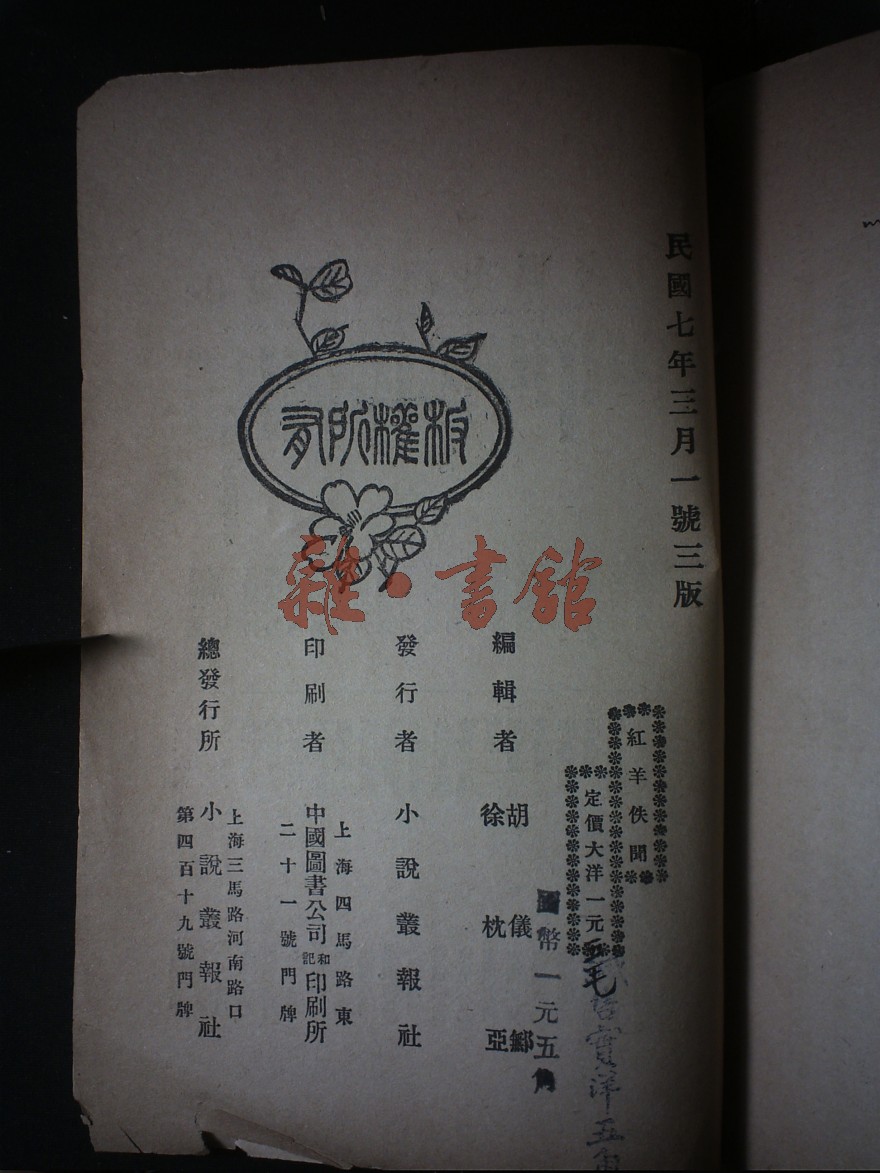 民國七年三月一號三版
紅羊佚聞
定價大洋一元
國幣一元五角
板權所有
編輯者 胡儀鄦 徐枕亞
發行者 小說叢報社
印刷者 上海四馬路東
中國圖書公司和記印刷所
二十一號門牌
總發行所 上海三馬路河南路口
小說叢報社
第四百十九號門牌
雜·書館